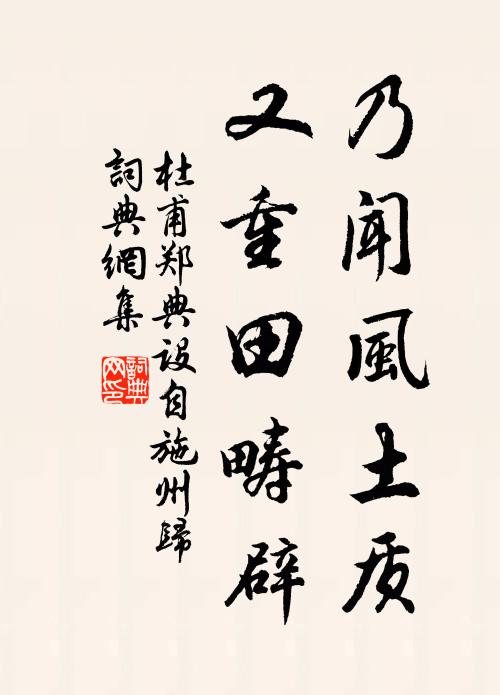 乃闻風土质
又重田畴辟
杜甫郑典设自施州歸
詞典網集
詞典网印